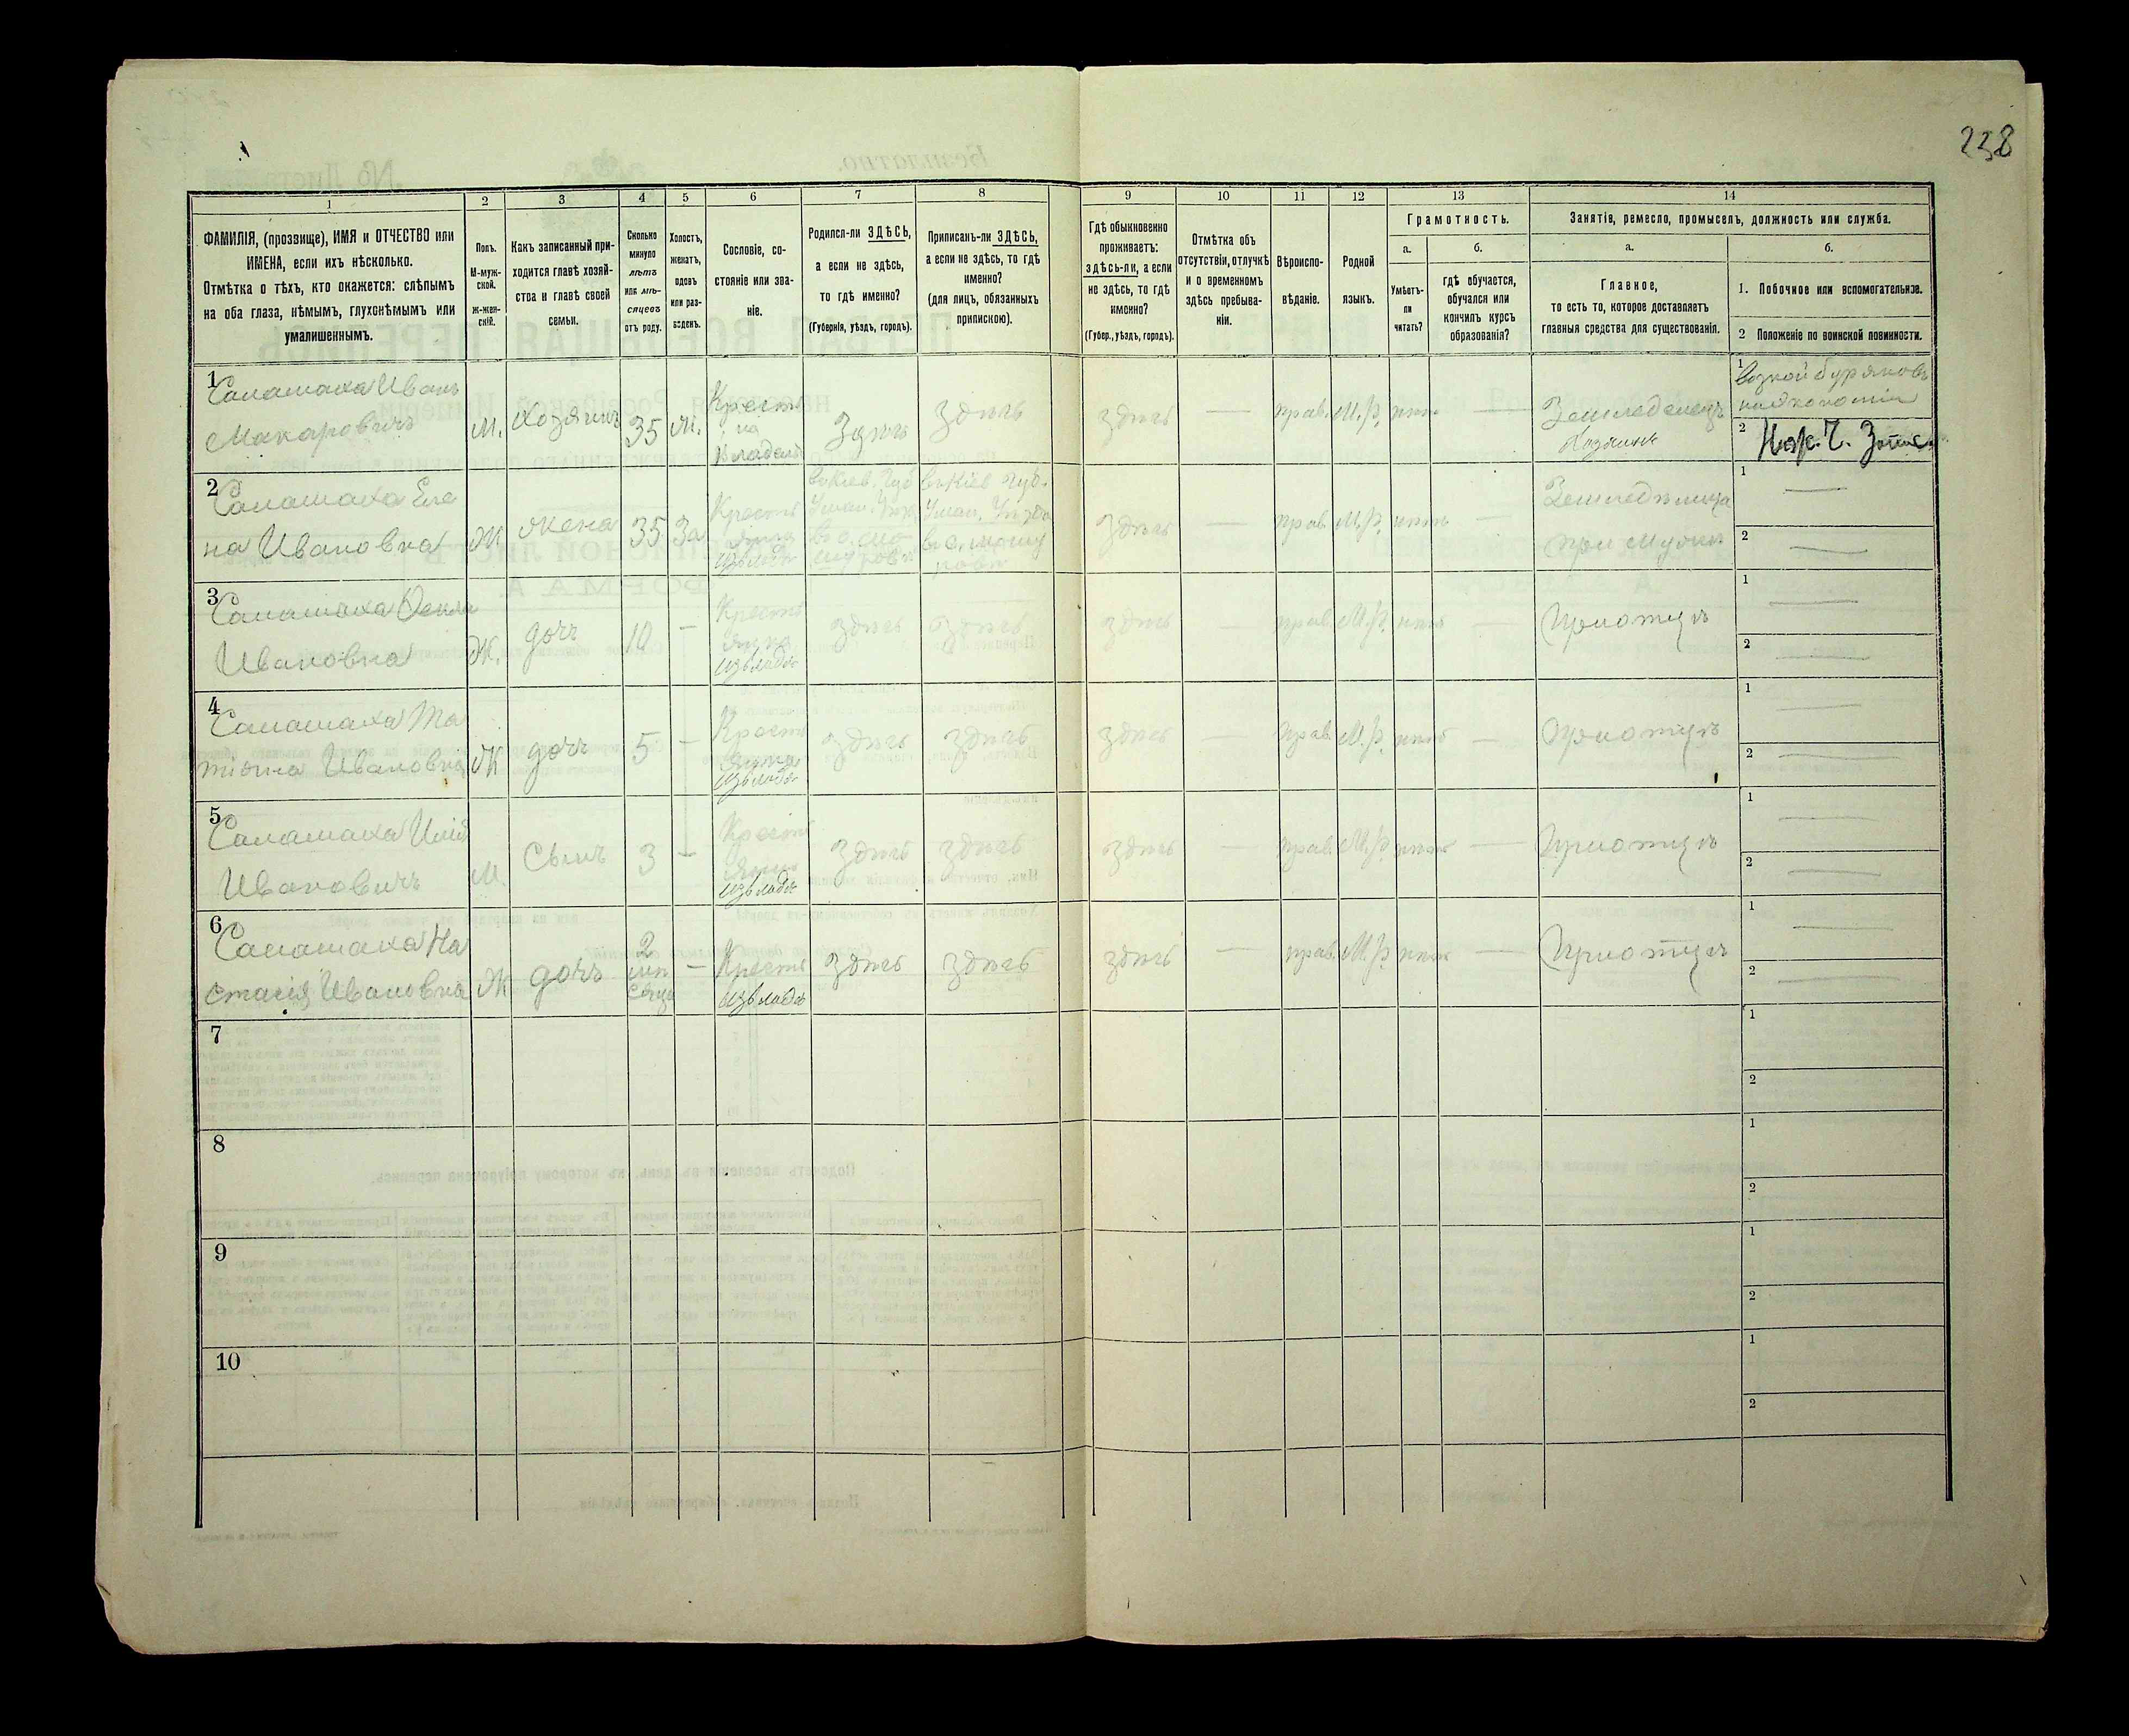 238
1 2 3 4 5 6 7 8 9 10 11 12 13 14
ФАМИЛІЯ, (прозвище), ИМЯ и ОТЧЕСТВО или
ИМЕНА, если ихъ нѣсколько.
Отмѣтка о тѣхъ, кто окажется: слѣпымъ
на оба глаза, нѣмымъ, глухонѣмымъ или
умалишеннымъ.
Полъ.
М-муж-
ской.
Ж-жен-
скій.
Какъ записанный при-
ходится главѣ хозяй-
ства и главѣ своей
семьи.
Сколько
минуло
лѣтъ
или мѣ-
сяцевъ
отъ роду.
Холостъ,
женатъ,
вдовъ
или раз-
веденъ.
Сословіе, со-
стояніе или зва-
ніе.
Родился-ли ЗДѢСЬ,
а если не здѣсь,
то гдѣ именно?
(Губернія, уѣздъ, городъ).
Приписанъ-ли ЗДѢСЬ,
а если не здѣсь, то гдѣ
именно?
(для лицъ, обязанныхъ
припискою).
Гдѣ обыкновенно
проживаетъ:
здѣсь-ли, а если
не здѣсь, то гдѣ
именно?
(Губер., уѣздъ, городъ).
Отмѣтка объ
отсутствіи, отлучкѣ
и о временномъ
здѣсь пребыва-
ніи.
Вѣроиспо-
вѣданіе.
Родной
языкъ.
Грамотность.
а.
Умѣетъ-
ли
читать?
б.
гдѣ обучается,
обучался или
кончилъ курсъ
образованія?
Занятія, ремесло, промыселъ, должность или служба.
а.
Главное,
то есть то, которое доставляетъ
главныя средства для существованія.
б.
1. Побочное или вспомогательное.
2 Положеніе по воинской повинности.
1
Саламаха Иванъ
Макаровичъ
м.
Хозяинъ
35
Здѣсь
здѣсь
здѣсь
—
прав.
М.р.
нѣтъ
—
Земледѣлецъ
Хозяинъ
1
2
2
Саламаха Еле
на Ивановна
Ж
жена
35
За
здѣсь
—
прав.
М.р.
нѣтъ
—
1 —
2 —
3
Саламаха
Ивановна
Ж.
дочь
10
—
здѣсь
здѣсь
здѣсь
—
прав.
М.р.
нѣтъ
—
При отцѣ
1 —
2 —
4
Саламаха Та
тіяна Ивановна
Ж
дочь
5
—
здѣсь
здѣсь
здѣсь
—
прав.
М.р.
нѣтъ
—
При отцѣ
1 —
2 —
5
Саламаха
Ивановичъ
М.
Сынъ
3
—
здѣсь
здѣсь
здѣсь
—
прав.
М.р.
нѣтъ
—
При отцѣ
1 —
2 —
6
Саламаха На
стасія Ивановна
Ж
дочь
2
мѣ
сяца
—
здѣсь
здѣсь
здѣсь
—
прав.
М.р.
нѣтъ
—
При отцѣ
1 —
2 —
7
1
2
8
1
2
9
1
2
10
1
2